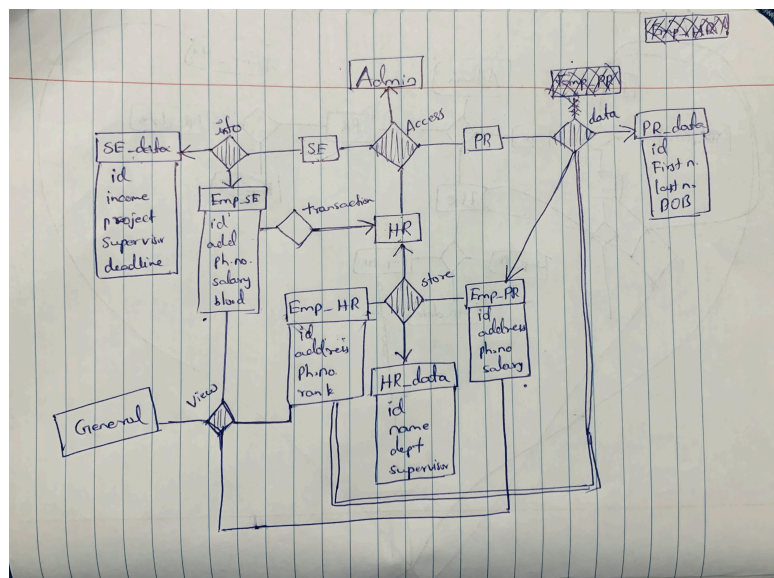 Emp_HR
Admin
Emp_PR
Access
data
info
SE_data
SE
PR
PR_data
id
income
project
Supervisor
deadline
id
First n.
last n.
DOB
Emp_SE
id
add
ph.no.
salary
blood
transaction
HR
store
Emp_HR
id
address
Ph.no.
rank
Emp_PR
id
address
ph.no
salary
HR_data
id
name
dept
supervisor
View
General